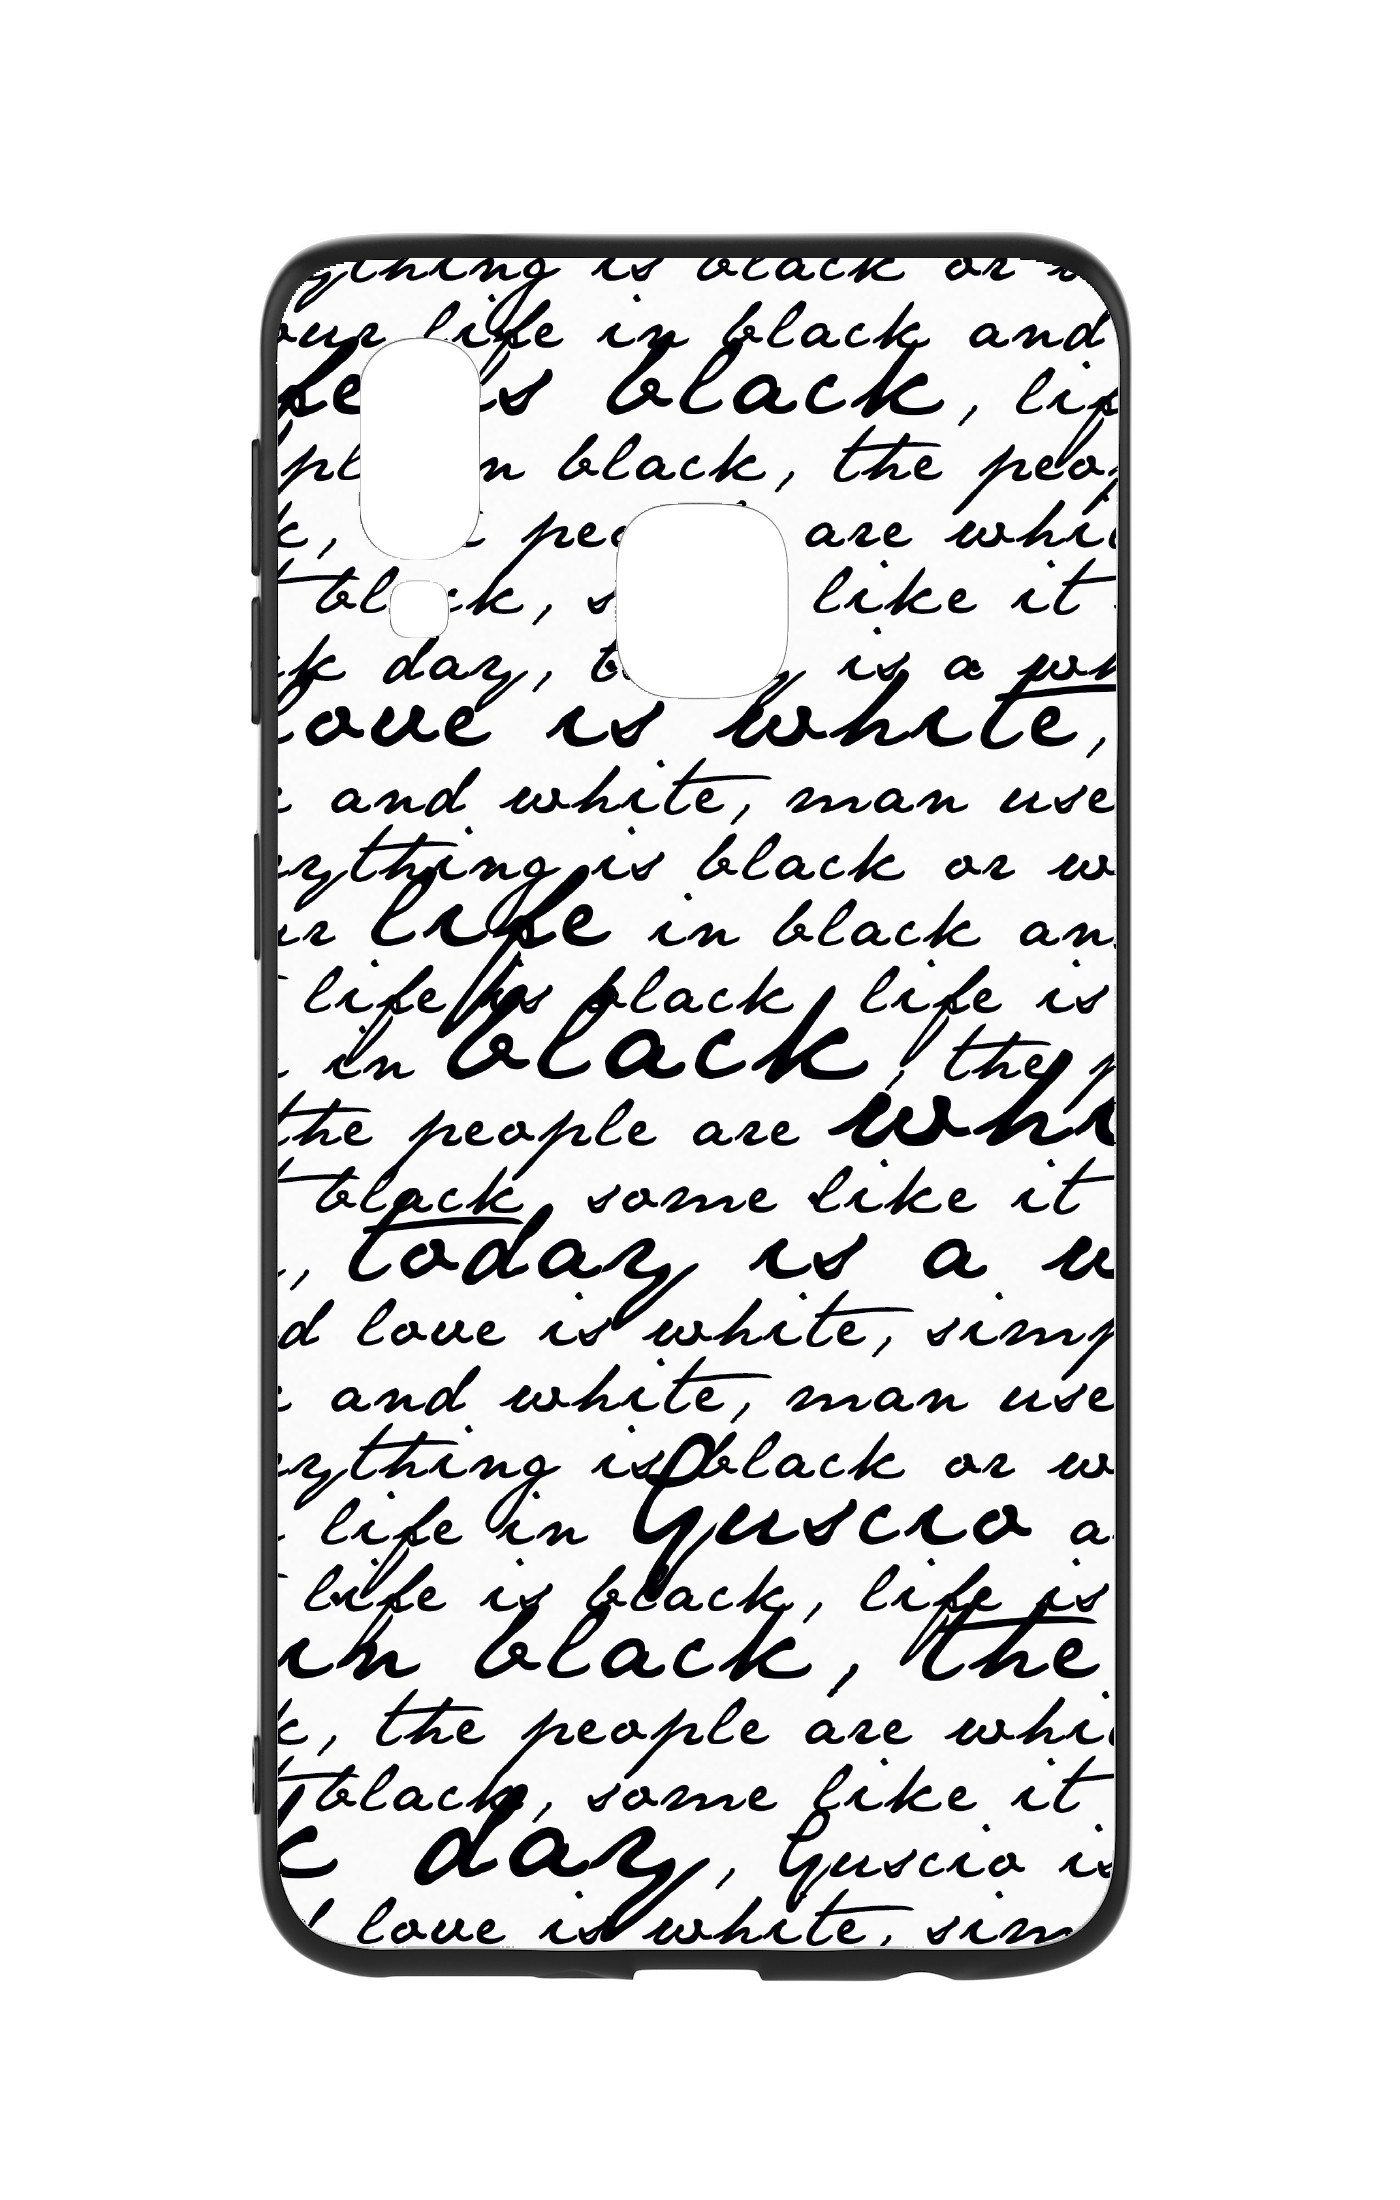 ything is black or w
our life in black and
fe is black, lif
pl in black, the peop
k, peo are whi
t black, s like it
k day, is a wh
love is white,
and white, man use
erything is black or w
ur life in black an
life is black life is
in black, the p
the people are whi
t black, some like it
, today is a w
d love is white, simp
and white, man use
erything is black or w
life in Guscio a
life is black, life is
in black, the
k, the people are whi
t black, some like it
k day, Guscio is
love is white, sim